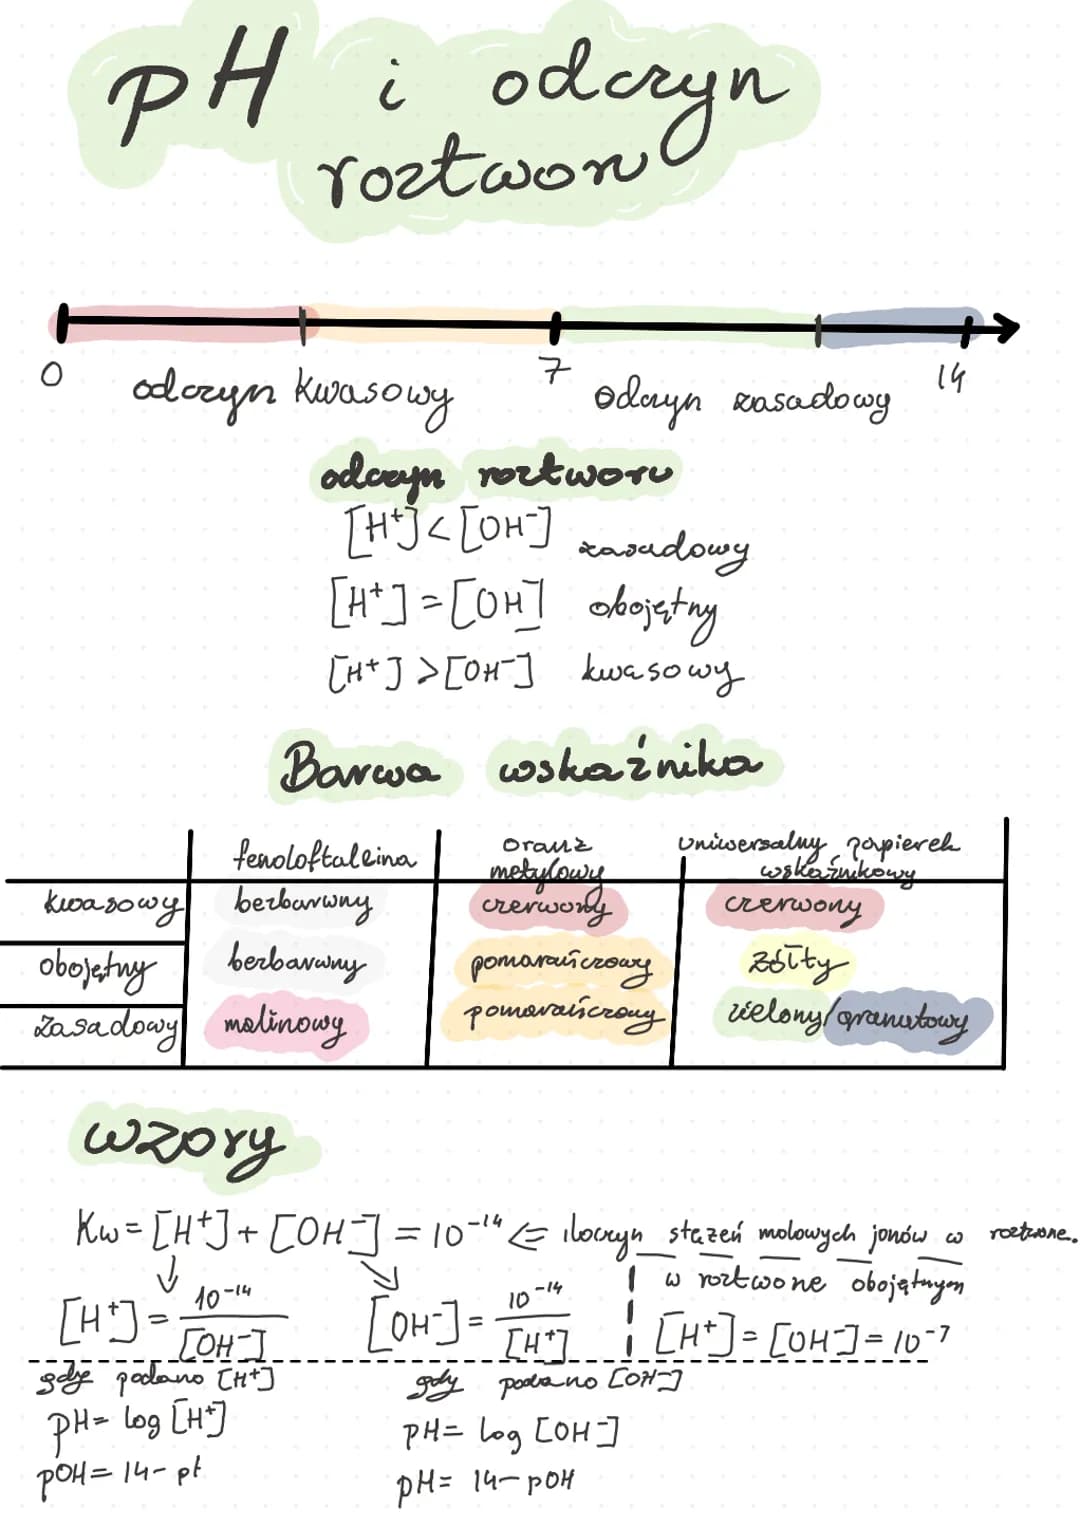 pH i odczyn
roztworu
0 7 14
odczyn kwasowy odczyn zasadowy
odczyn roztworu
[H⁺] < [OH⁻] zasadowy
[H⁺] = [OH⁻] obojętny
[H⁺] > [OH⁻] kwasowy
Barwa wskaźnika
fenoloftaleina oranż metylowy uniwersalny papierek wskaźnikowy
kwasowy bezbarwny czerwony czerwony
obojętny bezbarwny pomarańczowy żółty
zasadowy malinowy pomarańczowy zielony/granatowy
wzory
Kw = [H⁺] + [OH⁻] = 10⁻¹⁴ <= iloczyn stężeń molowych jonów w roztworze.
w roztworze obojętnym
[H⁺] = 10⁻¹⁴/[OH⁻] [OH⁻] = 10⁻¹⁴/[H⁺] [H⁺] = [OH⁻] = 10⁻⁷
gdy podano [H⁺] gdy podano [OH⁻]
pH = log [H⁺] pH = log [OH⁻]
pOH = 14 - pH pH = 14 - pOH